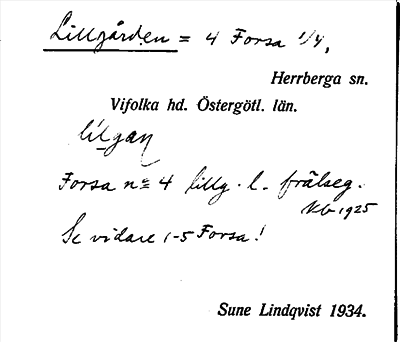 Lillgården = 4 Forsa 1/4,
Herrberga sn.
Vifolka hd. Östergötl. län.
Forsa nº 4 lillg. l. frälseg.
Kb 1925
Se vidare 1-5 Forsa!
Sune Lindqvist 1934.